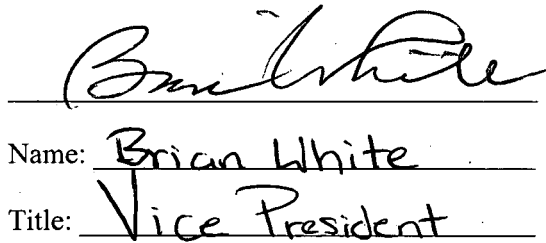 Brian White
Name: Brian White
Title: Vice President